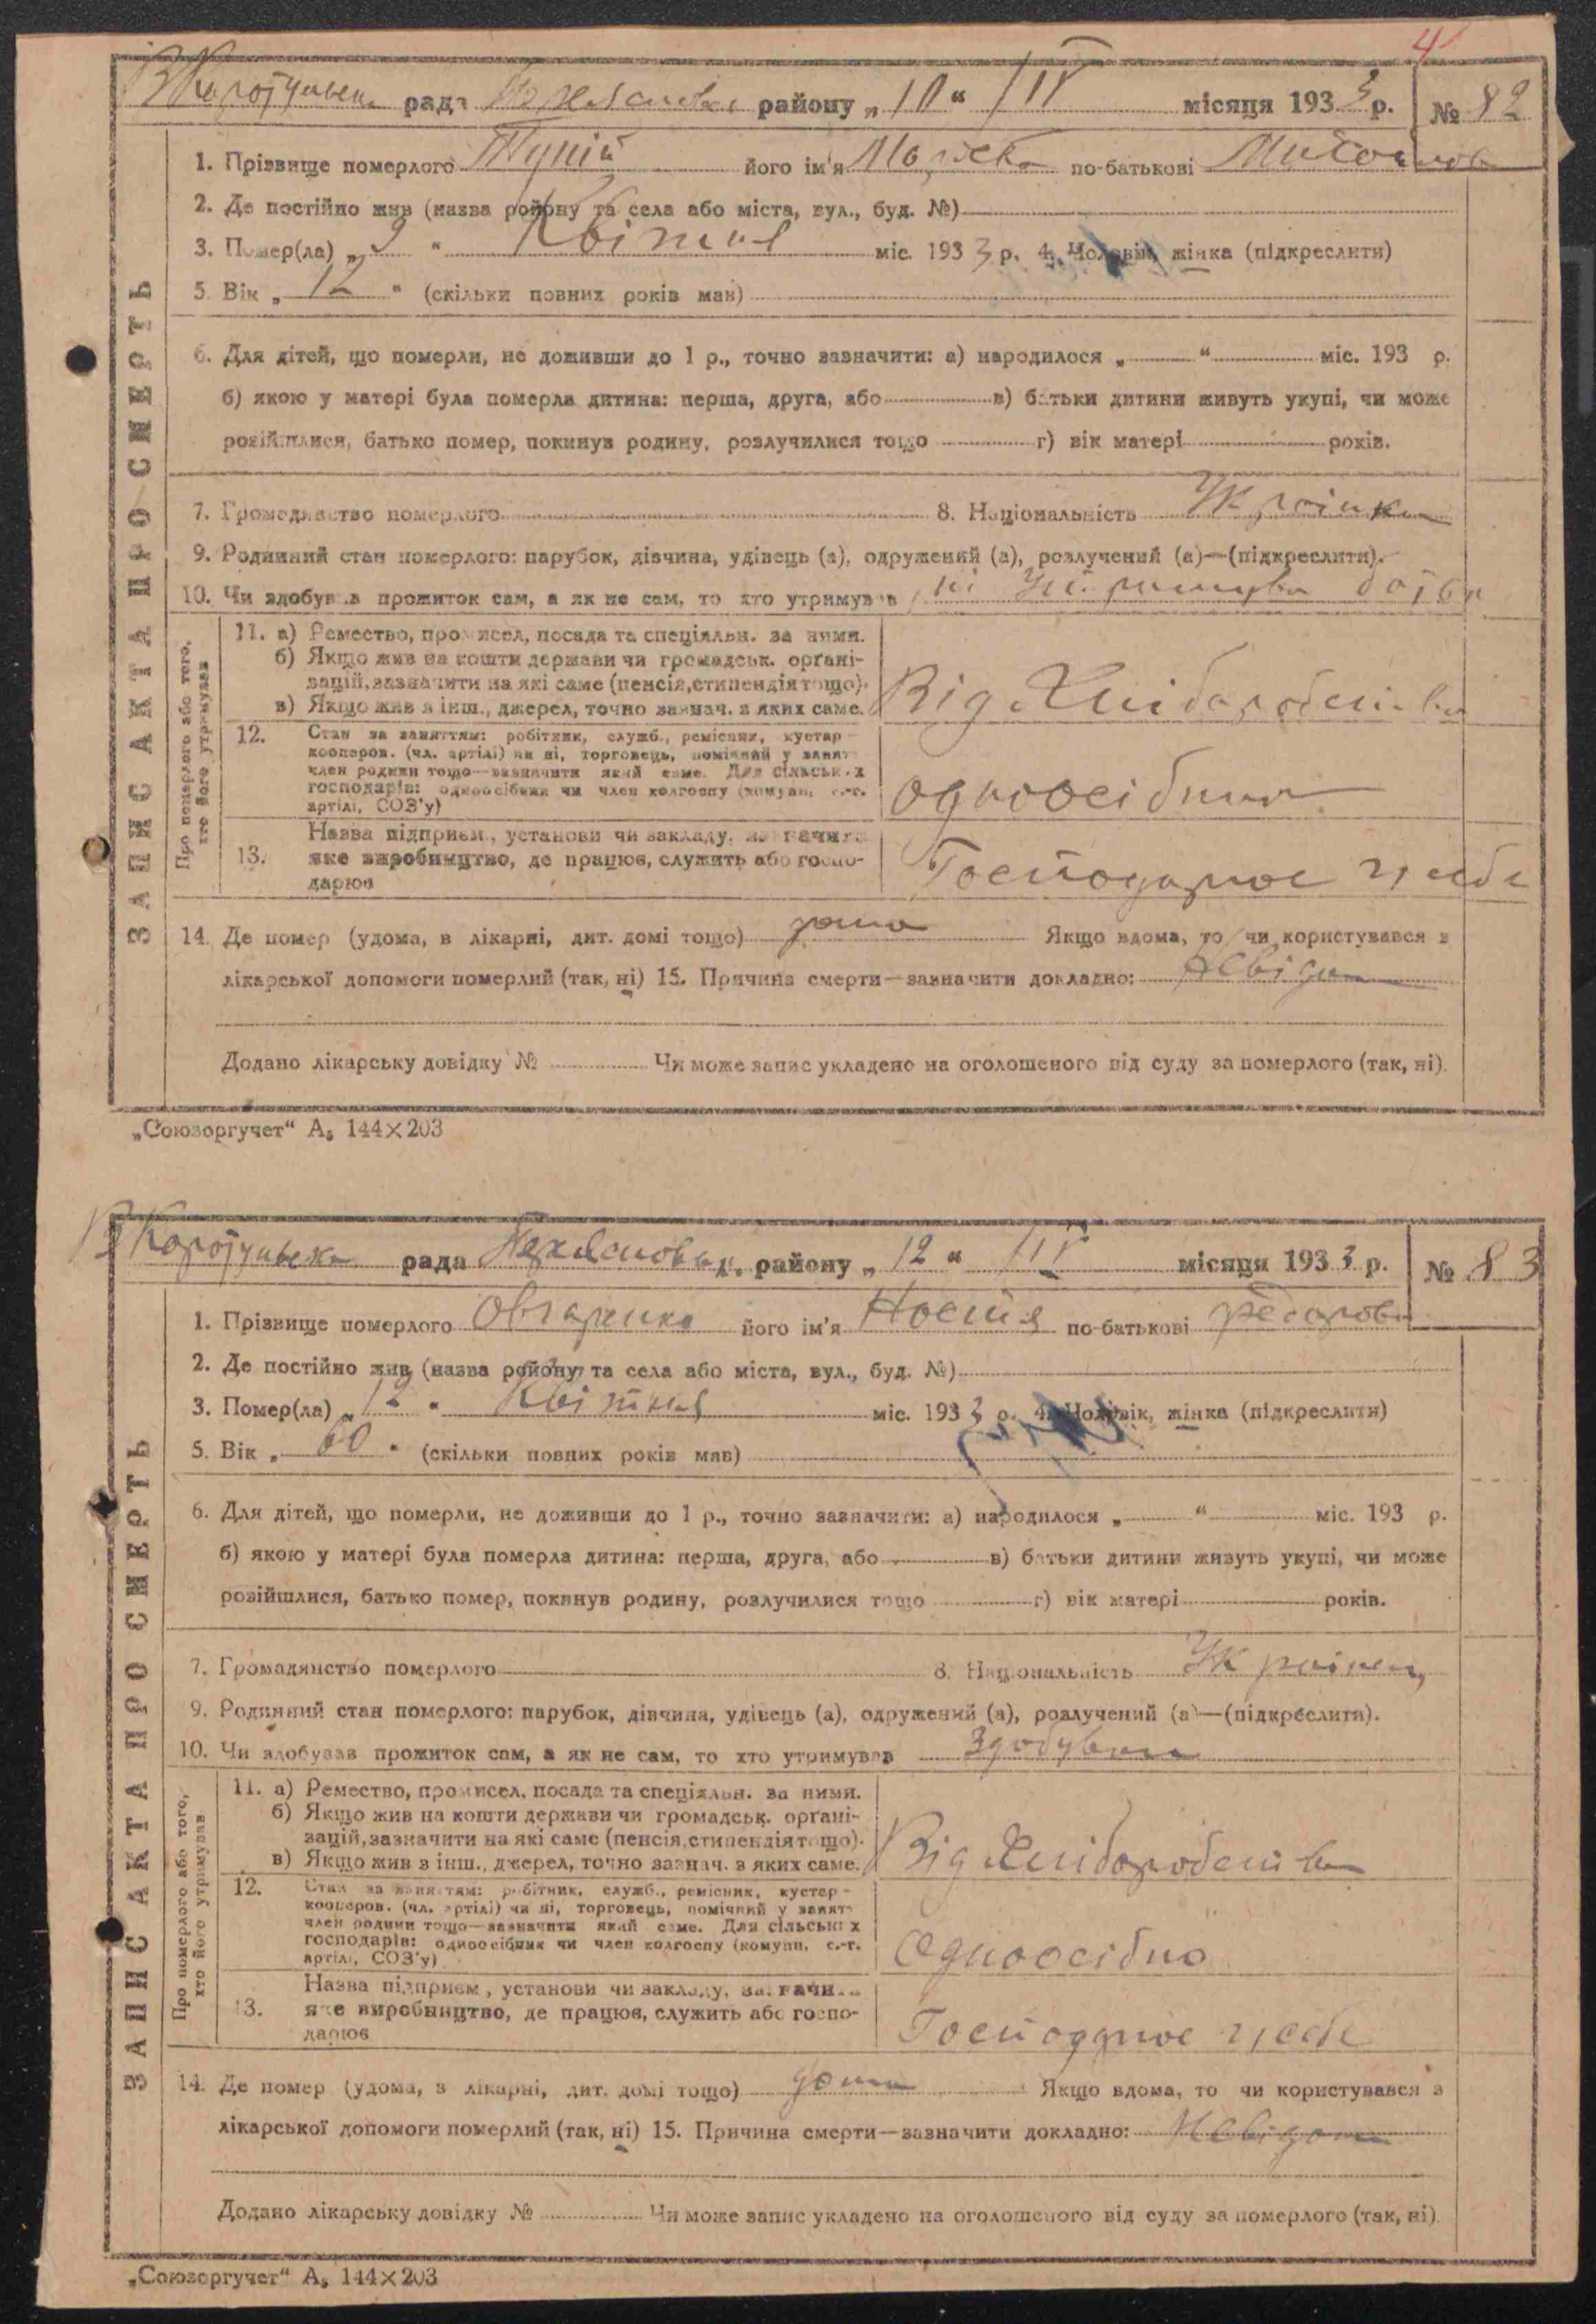 4
В Коротульська рада району „10“ IV місяця 1933 р. № 82
1. Прізвище померлого його ім'я по-батькові
2. Де постійно жив (назва району та села або міста, вул., буд. №)
3. Помер(ла) „9“ Квітня міс. 1933 р. 4. Чоловік, жінка (підкреслити)
5. Вік „12“ (скільки повних років мав)
6. Для дітей, що померли, не доживши до 1 р., точно зазначити: а) народилося „ “ міс. 193 р.
б) якою у матері була померла дитина: перша, друга, або в) батьки дитини живуть укупі, чи може
розійшлися, батько помер, покинув родину, розлучилися тощо г) вік матері років.
7. Громадянство померлого 8. Національність Українка
9. Родинний стан померлого: парубок, дівчина, удівець (а), одружений (а), розлучений (а)—(підкреслити).
10. Чи здобував прожиток сам, а як не сам, то хто утримував ні
ЗАПИС АКТА ПРО СМЕРТЬ
Про померлого або того, хто його утримував
11. а) Ремество, промисел, посада та спеціяльн. за ними.
б) Якщо жив на кошти держави чи громадськ. орґані-
зацій, зазначити на які саме (пенсія, стипендія тощо).
в) Якщо жив з інш., джерел, точно зазнач. з яких саме.
Від Хліборобства
12. Стан за заняттям: робітник, служб., ремісник, кустар-
кооперов. (чл. артілі) чи ні, торговець, помічний у занят.
член родини тощо—зазначити який саме. Для сільських
господарів: одноосібник чи член колгоспу (комуни, с.-г.
артілі, СОЗ'у)
13. Назва підприєм., установи чи закладу, зазначити
яке виробництво, де працює, служить або госпо-
дарює
Господарює у себе
14. Де помер (удома, в лікарні, дит. домі тощо) дома Якщо вдома, то чи користувався з
лікарської допомоги померлий (так, ні) 15. Причина смерти—зазначити докладно: Невідома
Додано лікарську довідку № Чи може запис укладено на оголошеного від суду за померлого (так, ні).
„Союзоргучет“ А₅ 144×203
В Коротульська рада району „12“ IV місяця 1933 р. № 83
1. Прізвище померлого Овчаренко його ім'я Настя по-батькові Федорова
2. Де постійно жив (назва району та села або міста, вул., буд. №)
3. Помер(ла) „12“ Квітня міс. 1933 р. 4. Чоловік, жінка (підкреслити)
5. Вік „60“ (скільки повних років мав)
6. Для дітей, що померли, не доживши до 1 р., точно зазначити: а) народилося „ “ міс. 193 р.
б) якою у матері була померла дитина: перша, друга, або в) батьки дитини живуть укупі, чи може
розійшлися, батько помер, покинув родину, розлучилися тощо г) вік матері років.
7. Громадянство померлого 8. Національність
9. Родинний стан померлого: парубок, дівчина, удівець (а), одружений (а), розлучений (а)—(підкреслити).
10. Чи здобував прожиток сам, а як не сам, то хто утримував Здобувала
ЗАПИС АКТА ПРО СМЕРТЬ
Про померлого або того, хто його утримував
11. а) Ремество, промисел, посада та спеціяльн. за ними.
б) Якщо жив на кошти держави чи громадськ. орґані-
зацій, зазначити на які саме (пенсія, стипендія тощо).
в) Якщо жив з інш., джерел, точно зазнач. з яких саме.
Від Хліборобства
12. Стан за заняттям: робітник, служб., ремісник, кустар-
кооперов. (чл. артілі) чи ні, торговець, помічний у занят.
член родини тощо—зазначити який саме. Для сільських
господарів: одноосібник чи член колгоспу (комуни, с.-г.
артілі, СОЗ'у)
Одноосібно
13. Назва підприєм., установи чи закладу, зазначити
яке виробництво, де працює, служить або госпо-
дарює
Господарює у себе
14. Де помер (удома, в лікарні, дит. домі тощо) дома Якщо вдома, то чи користувався з
лікарської допомоги померлий (так, ні) 15. Причина смерти—зазначити докладно: Невідома
Додано лікарську довідку № Чи може запис укладено на оголошеного від суду за померлого (так, ні).
„Союзоргучет“ А₅ 144×203